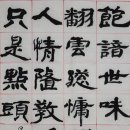 飽諳世味
翻雲總慵
人情隨教
只是點頭